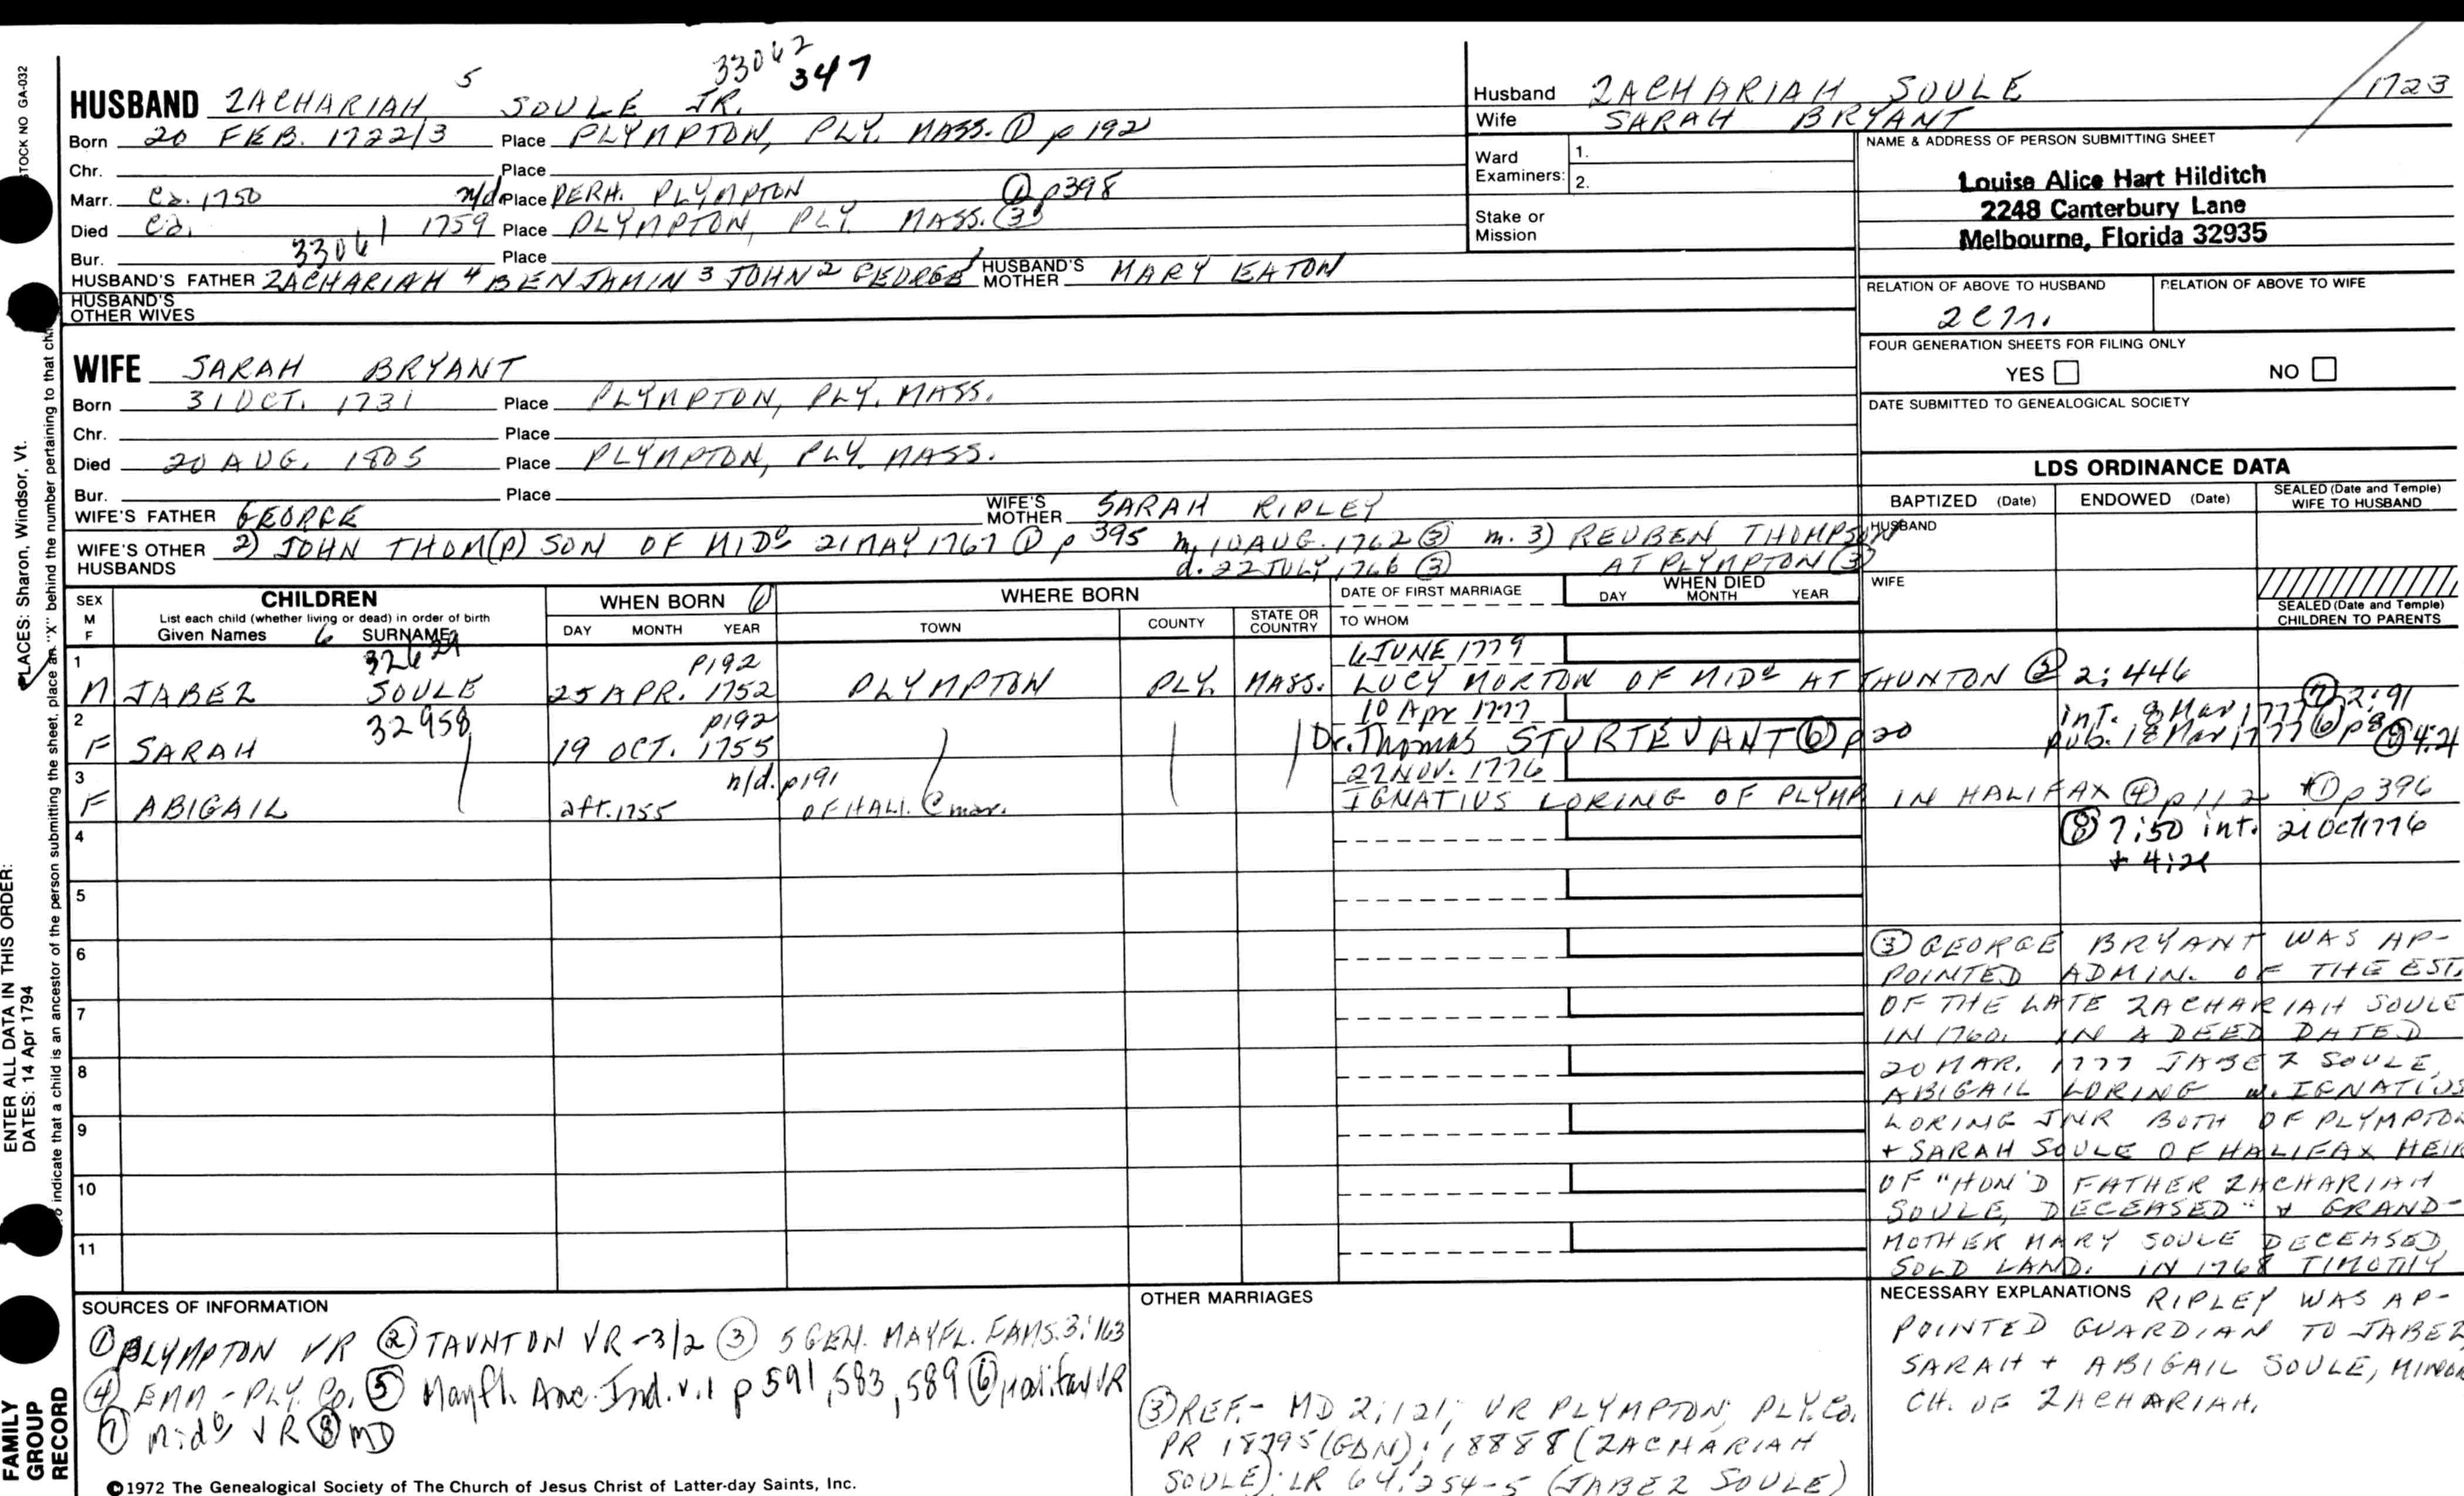 STOCK NO GA-032
33062
347
HUSBAND ZACHARIAH 5 SOULE JR.
Born 20 FEB. 1722/3 Place PLYMPTON, PLY. MASS. ① p 192
Chr. Place
Marr. Ca. 1750 n/d Place PERH. PLYMPTON ① p398
Died Ca. 1759 Place PLYMPTON, PLY. MASS. ③
Bur. 33061 Place
HUSBAND'S FATHER ZACHARIAH 4 BENJAMIN 3 JOHN 2 GEORGE 1 HUSBAND'S MOTHER MARY EATON
HUSBAND'S OTHER WIVES
Husband ZACHARIAH SOULE 1723
Wife SARAH BRYANT
Ward Examiners: 1.
2.
Stake or Mission
NAME & ADDRESS OF PERSON SUBMITTING SHEET
Louise Alice Hart Hilditch
2248 Canterbury Lane
Melbourne, Florida 32935
RELATION OF ABOVE TO HUSBAND RELATION OF ABOVE TO WIFE
FOUR GENERATION SHEETS FOR FILING ONLY
YES NO
DATE SUBMITTED TO GENEALOGICAL SOCIETY
WIFE SARAH BRYANT
Born 31 OCT. 1731 Place PLYMPTON, PLY. MASS.
Chr. Place
Died 20 AUG. 1805 Place PLYMPTON, PLY. MASS.
Bur. Place
WIFE'S FATHER GEORGE WIFE'S MOTHER SARAH RIPLEY
WIFE'S OTHER HUSBANDS 2) JOHN THOM(P)SON OF MIDo 21 MAY 1767 ① p 395 m. 10 AUG. 1762 ③ m. 3) REUBEN THOMPSON
d. 22 JULY 1766 ③ AT PLYMPTON ③
LDS ORDINANCE DATA
BAPTIZED (Date) ENDOWED (Date) SEALED (Date and Temple) WIFE TO HUSBAND
HUSBAND
WIFE
SEALED (Date and Temple) CHILDREN TO PARENTS
SEX M F CHILDREN WHEN BORN ① WHERE BORN DATE OF FIRST MARRIAGE WHEN DIED
List each child (whether living or dead) in order of birth
Given Names 6 SURNAME DAY MONTH YEAR TOWN COUNTY STATE OR COUNTRY TO WHOM DAY MONTH YEAR
1 p192 6 JUNE 1779
M JABEZ SOULE 25 APR. 1752 PLYMPTON PLY. MASS. LUCY MORTON OF MIDo AT TAUNTON ② 2:446
2 32958 p192 10 Apr 1777 int. 8 Mar 1777 ⑦ 2:91
F SARAH 19 OCT. 1755 Dr. Thomas STURTEVANT ⑥ p 20 pub. 18 Mar 1777 ⑥
3 n/d. p191 27 NOV. 1776
F ABIGAIL aft. 1755 OF HALI. @ mar. IGNATIUS LORING OF PLYMP IN HALIFAX ④ p 112 + ① p 396
4 ⑧ 7:50 int. 21 Oct 1776
5
6
7
8
9
10
11
③ GEORGE BRYANT WAS AP-
POINTED ADMIN. OF THE EST.
OF THE LATE ZACHARIAH SOULE
IN 1760. IN A DEED DATED
20 MAR. 1777 JABEZ SOULE,
ABIGAIL LORING w. IGNATIUS
LORING JNR BOTH OF PLYMPTON
+ SARAH SOULE OF HALIFAX HEIR
OF "HON'D FATHER ZACHARIAH
SOULE, DECEASED" + GRAND-
MOTHER MARY SOULE DECEASED,
SOLD LAND. IN 1768 TIMOTHY
NECESSARY EXPLANATIONS RIPLEY WAS AP-
POINTED GUARDIAN TO JABEZ
SARAH + ABIGAIL SOULE, MINOR
CH. OF ZACHARIAH.
SOURCES OF INFORMATION
① PLYMPTON VR ② TAUNTON VR -3/2 ③ 5 GEN. MAYFL. FAMS. 3:163
④ EMM - PLY. Co. ⑤ Mayfl. Anc. Ind. v.1 p 591, 583, 589 ⑥ Halifax VR
⑦ Mido VR ⑧ MD
OTHER MARRIAGES
③ REF.- MD 2:121; VR PLYMPTON; PLY. Co.
PR 18795 (GDN); 18888 (ZACHARIAH
SOULE); LR 64:254-5 (JABEZ SOULE)
©1972 The Genealogical Society of The Church of Jesus Christ of Latter-day Saints, Inc.
FAMILY GROUP RECORD
ENTER ALL DATA IN THIS ORDER:
DATES: 14 Apr 1794
PLACES: Sharon, Windsor, Vt.
indicate that a child is an ancestor of the person submitting the sheet, place an "X" behind the number pertaining to that